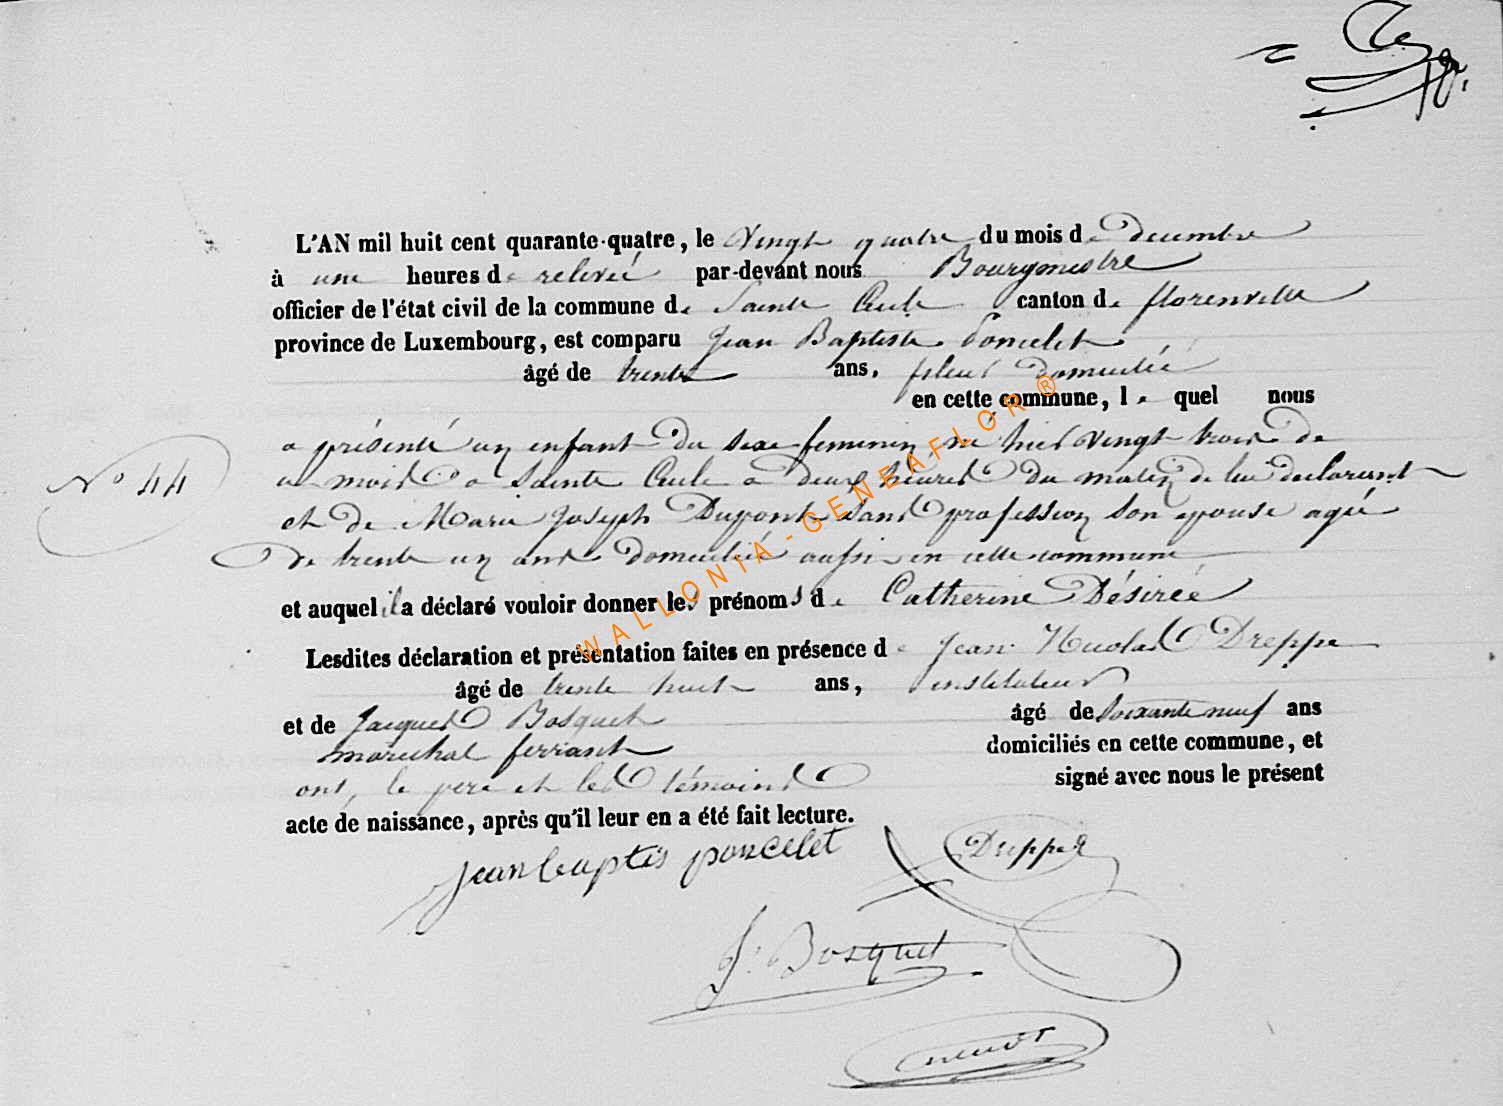 L'AN mil huit cent quarante-quatre, le Vingt quatre du mois de decembre
à une heures de relevée par-devant nous Bourgmestre
officier de l'état civil de la commune de Sainte Cecile canton de florenville
province de Luxembourg, est comparu Jean Baptiste Poncelet
âgé de trente ans, domicilié
en cette commune, le quel nous
a présenté un enfant du sexe feminin né hier vingt trois de
ce mois a Sainte Cecile a deux heures du matin de lui declarant
et de Marie Joseph Dupont sans profession son epouse agée
de trente un ans domiciliée aussi en cette commune
N° 44
et auquel il a déclaré vouloir donner les prénoms de Catherine Désirée
Lesdites déclaration et présentation faites en présence de Jean Nicolas Dreppe
âgé de trente huit ans, instituteur
et de Jacques Bosquet âgé de Soixante neuf ans
marechal ferrant domiciliés en cette commune, et
ont, le pere et les témoins signé avec nous le présent
acte de naissance, après qu'il leur en a été fait lecture.
jean baptis poncelet Dreppe
J. Bosquet
WALLONIA-GENEAFLOR ®